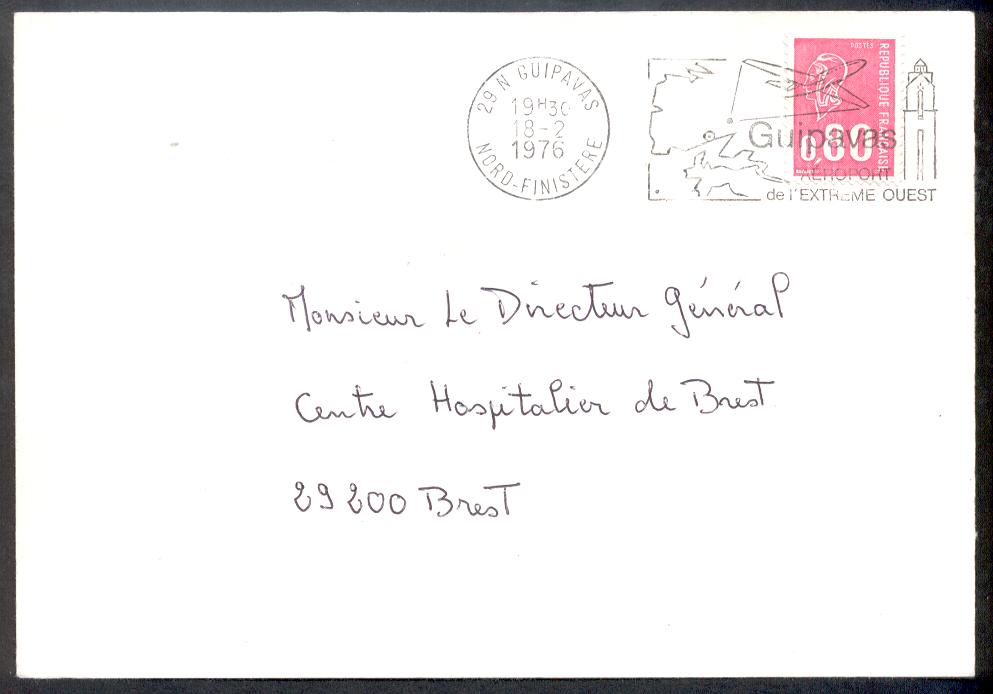 29 N GUIPAVAS
19H30
18-2
1976
NORD-FINISTERE
POSTES
REPUBLIQUE FRANCAISE
0,80
Guipavas
AÉROPORT
de l'EXTREME OUEST
Monsieur Le Directeur Général
Centre Hospitalier de Brest
29200 Brest